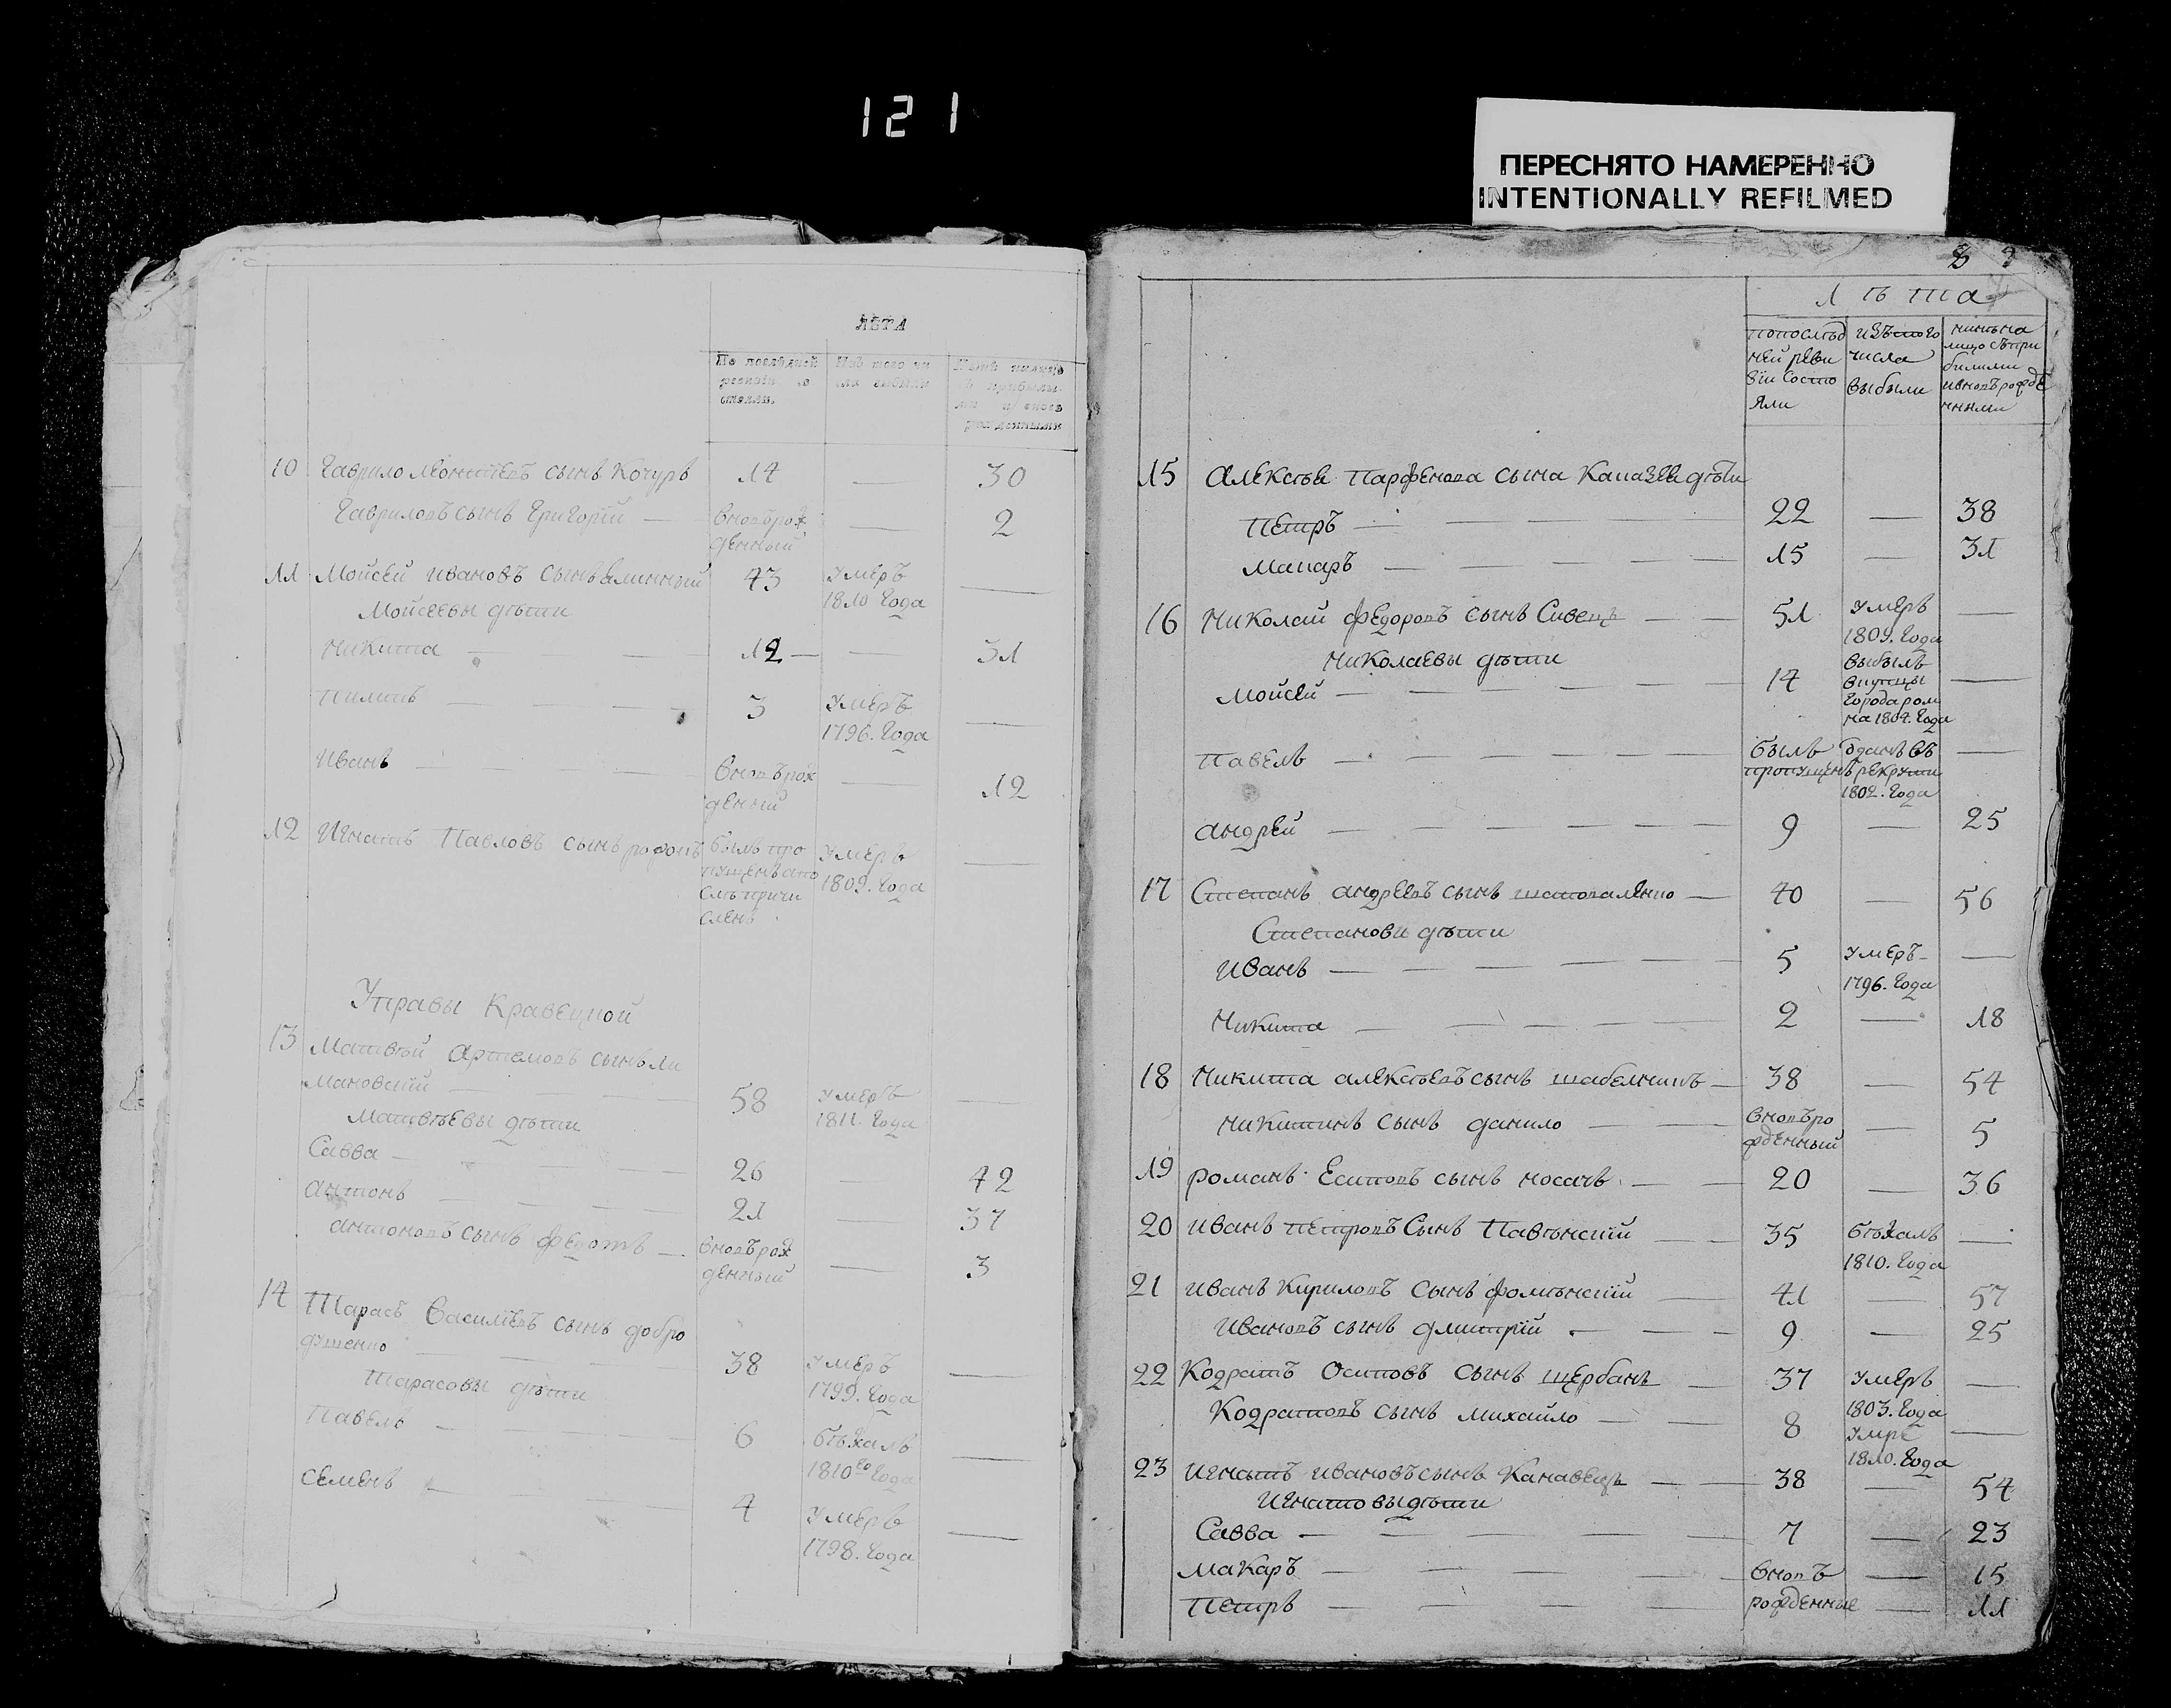 121
ПЕРЕСНЯТО НАМЕРЕННО
INTENTIONALLY REFILMED
ЛѢТА
По послѣдней ревизіи со стояли.
Изъ того чи сла выбыли
10 Гаврило Леонтіевъ сынъ Кочуръ 14 — 30
Гавриловъ сынъ Григорій — вновьрож — 2
денный
11 Мойсей ивановъ сынъ 43 умеръ —
1810 года
Мойсеевы дѣти
Никита — — — 12 — — 31
Пилипъ — — — 3 умеръ —
1796. года
Иванъ — — вновьрож — 12
денный
12 Игнатъ Павловъ сынъ былъ про умеръ —
пущенъ апо 1809. года
слѣ причи
сленъ
Управы Кравецкой
13 Матвѣй Артемовъ сынъ Ли
мановскій — — 58 умеръ —
1811. года
Матвѣевы дѣти
Савва — — — 26 — 42
антонъ — — — 21 — 37
антоновъ сынъ федотъ — вновьрож — 3
денный
14 Тарасъ Василіевъ сынъ добро
душенко — — 38 умеръ —
1799. года
Тарасовы дѣти
Павелъ — — — 6 бѣжалъ —
1810го года
Семенъ — — — 4 умеръ —
1798. года
лѣта
попослѣд изътого нинѣна
ней реви числа лицо съпри
зіи состо выбыли билими
яли ивновьрожде
нными
15 алексѣя Парфенова сына Капазея дѣти
Петръ — — — 22 — 38
Макаръ — — — 15 — 31
16 Николай федоровъ сынъ Сивецъ — — 51 умеръ —
1809. года
Николаевы дѣти
мойсей — — — 14 выбылъ —
вкупцы
города ром
на 1804. года
павелъ — — — былъ отданъ въ —
пропущенъ рекруты
1802. года
андрей — — — 9 — 25
17 Степанъ андреевъ сынъ шаповаленко — 40 — 56
Степанови дѣти
иванъ — — — 5 умеръ —
1796. года
Никита — — — 2 — 18
18 Никита алексѣевъ сынъ шабелникъ — 38 — 54
никитинъ сынъ данило — — вновьро — 5
жденный
19 романъ Есиповъ сынъ носачъ — — 20 — 36
20 иванъ петровъ Сынъ Павѣнскій — — 35 бѣжалъ —
1810. года
21 иванъ Кириловъ сынъ фомѣнскій — 41 — 57
ивановъ сынъ дмитрій — — — 9 — 25
22 Кодратъ Осиповъ сынъ щербанъ — 37 умеръ —
1803. года
Кодратовъ сынъ михайло — — 8 умре —
1810. года
23 игнатъ ивановъ сынъ Канавецъ — — 38 — 54
Игнатовы дѣти
Савва — — — 7 — 23
Макаръ — — — вновь — 15
петръ — — — рожденные — 11